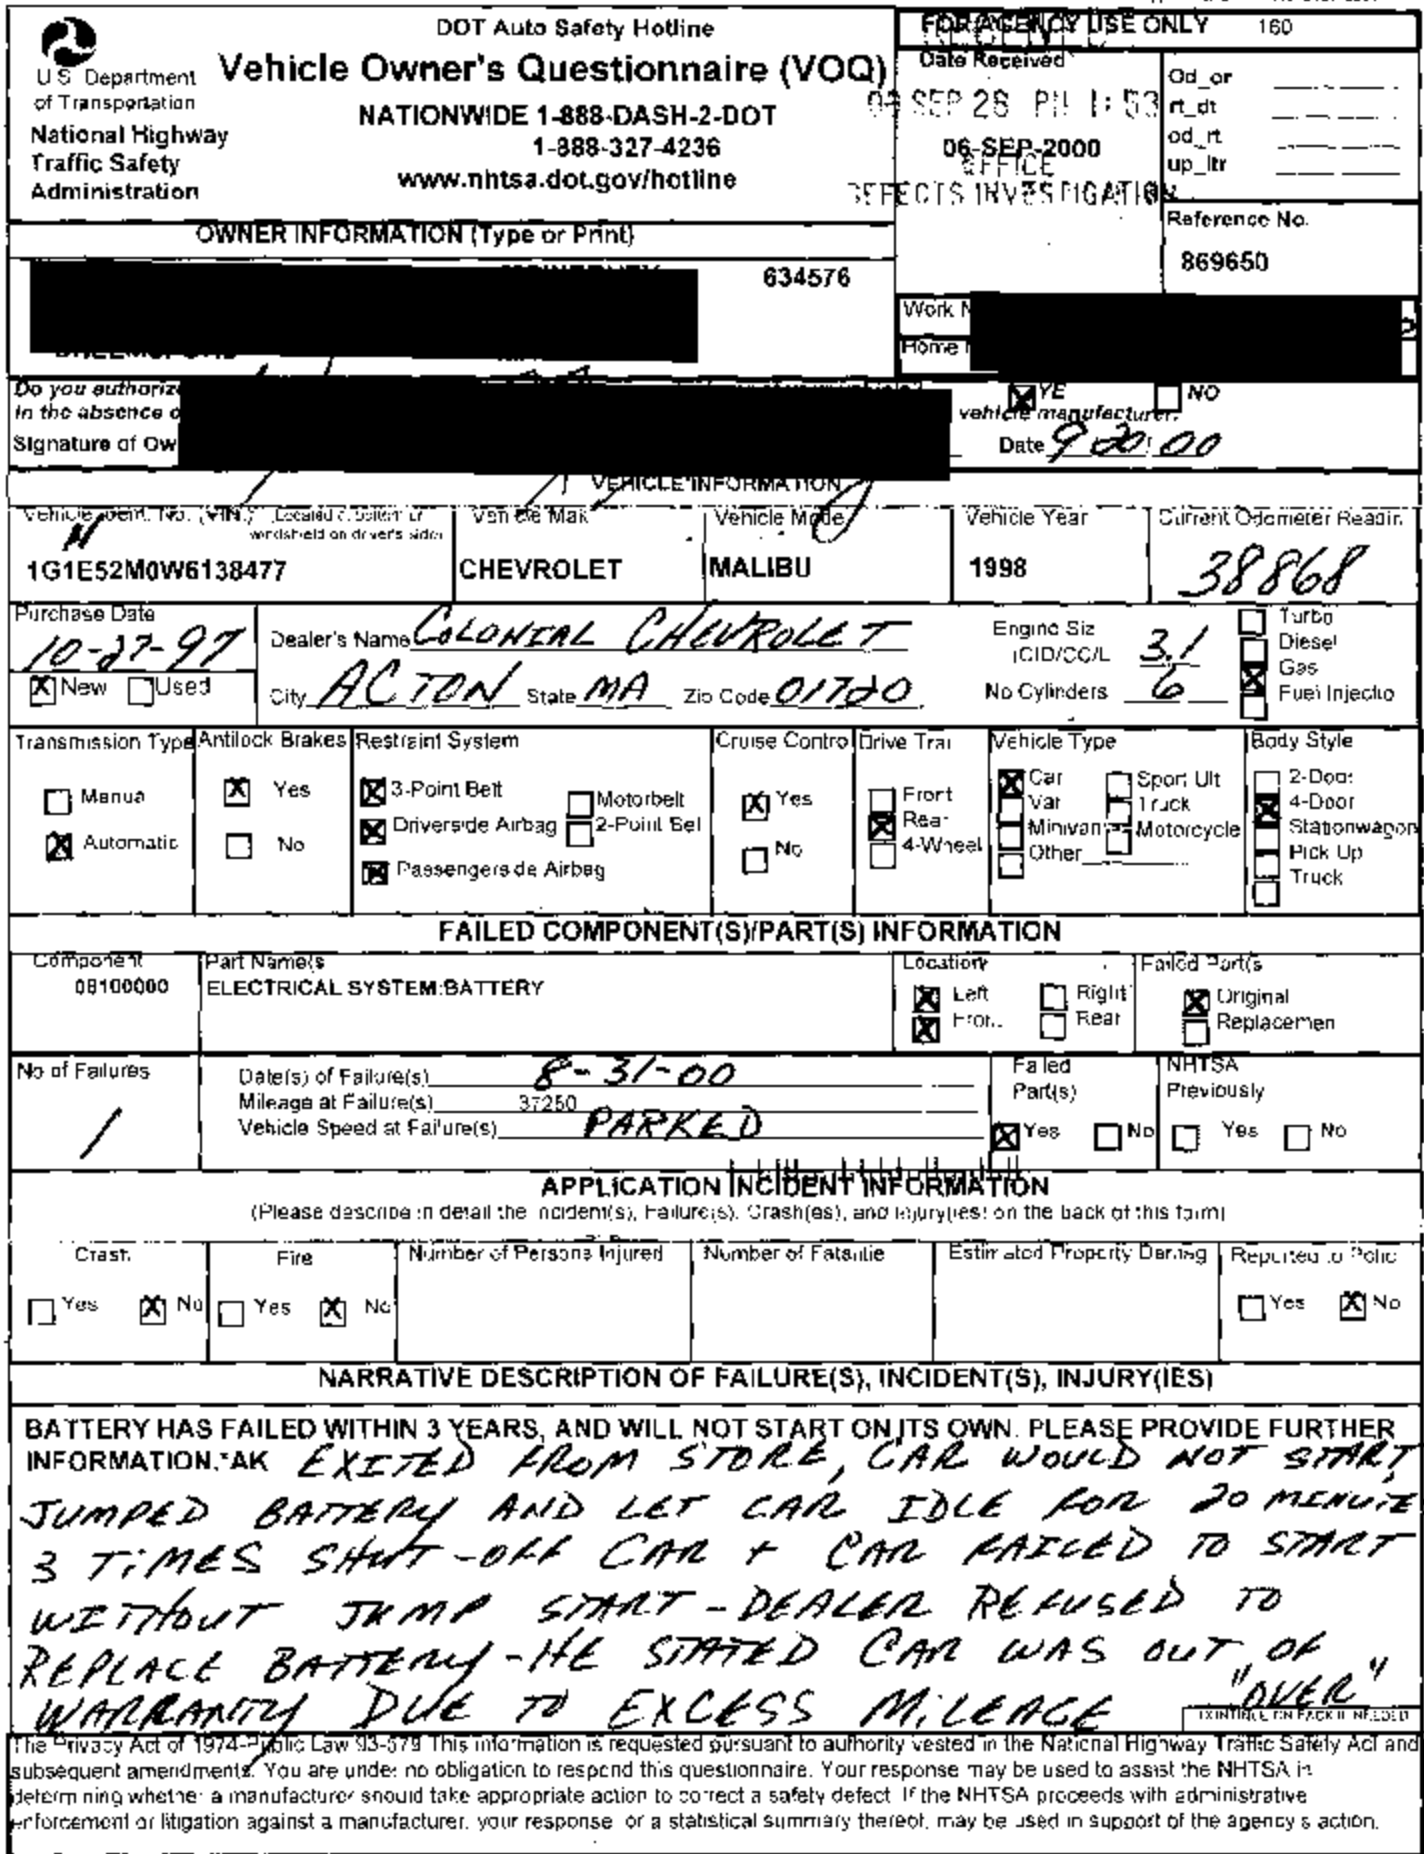 DOT Auto Safety Hotline
Vehicle Owner's Questionnaire (VOQ)
NATIONWIDE 1-888-DASH-2-DOT
1-888-327-4236
www.nhtsa.dot.gov/hotline
U S Department
of Transportation
National Highway
Traffic Safety
Administration
FOR AGENCY USE ONLY 160
Date Received
SEP 28 PM 1:53
06-SEP-2000
OFFICE
DEFECTS INVESTIGATION
Od_or
rt_dt
od_rt
up_ltr
Reference No.
869650
OWNER INFORMATION (Type or Print)
634576
Work N
Home
Do you authoriz
YE NO
In the absence o
vehicle manufacturer.
Signature of Ow
Date 9-20-00
VEHICLE INFORMATION
Vehicle Ident. No. (VIN) (Located at bottom of
windshield on driver's side)
N
1G1E52M0W6138477
Vehicle Mak
CHEVROLET
Vehicle Mode
MALIBU
Vehicle Year
1998
Current Odometer Readin
38868
Purchase Date
10-27-97
X New Used
Dealer's Name COLONIAL CHEVROLET
City ACTON State MA Zip Code 01720
Engine Siz
(CID/CC/L 3.1
No Cylinders 6
Turbo
Diesel
X Gas
Fuel Injectio
Transmission Type
Manua
X Automatic
Antilock Brakes
X Yes
No
Restraint System
X 3-Point Belt
Motorbelt
X Driverside Airbag
2-Point Bel
X Passengerside Airbag
Cruise Contro
X Yes
No
Drive Trai
Front
X Rear
4-Wheel
Vehicle Type
X Car
Van
Minivan
Other
Sport Ult
Truck
Motorcycle
Body Style
2-Door
X 4-Door
Stationwagon
Pick Up
Truck
FAILED COMPONENT(S)/PART(S) INFORMATION
Component
08100000
Part Name(s
ELECTRICAL SYSTEM:BATTERY
Location
X Left Right
X Front Rear
Failed Part(s
X Original
Replacemen
No of Failures
1
Date(s) of Failure(s) 8-31-00
Mileage at Failure(s) 37250
Vehicle Speed at Failure(s) PARKED
Failed
Part(s)
X Yes No
NHTSA
Previously
Yes No
APPLICATION INCIDENT INFORMATION
(Please describe in detail the incident(s), Failure(s), Crash(es), and injury(ies) on the back of this form)
Crash
Yes X No
Fire
Yes X No
Number of Persons Injured
Number of Fatalitie
Estimated Property Damag
Reported to Polic
Yes X No
NARRATIVE DESCRIPTION OF FAILURE(S), INCIDENT(S), INJURY(IES)
BATTERY HAS FAILED WITHIN 3 YEARS, AND WILL NOT START ON ITS OWN. PLEASE PROVIDE FURTHER
INFORMATION.*AK EXITED FROM STORE, CAR WOULD NOT START,
JUMPED BATTERY AND LET CAR IDLE FOR 20 MINUTE
3 TIMES SHUT-OFF CAR + CAR FAILED TO START
WITHOUT JUMP START - DEALER REFUSED TO
REPLACE BATTERY - HE STATED CAR WAS OUT OF
WARRANTY DUE TO EXCESS MILEAGE "OVER"
CONTINUE ON BACK IF NEEDED
The Privacy Act of 1974-Public Law 93-579 This information is requested pursuant to authority vested in the National Highway Traffic Safety Act and
subsequent amendments. You are under no obligation to respond this questionnaire. Your response may be used to assist the NHTSA in
determining whether a manufacturer should take appropriate action to correct a safety defect. If the NHTSA proceeds with administrative
enforcement or litigation against a manufacturer, your response, or a statistical summary thereof, may be used in support of the agency's action.